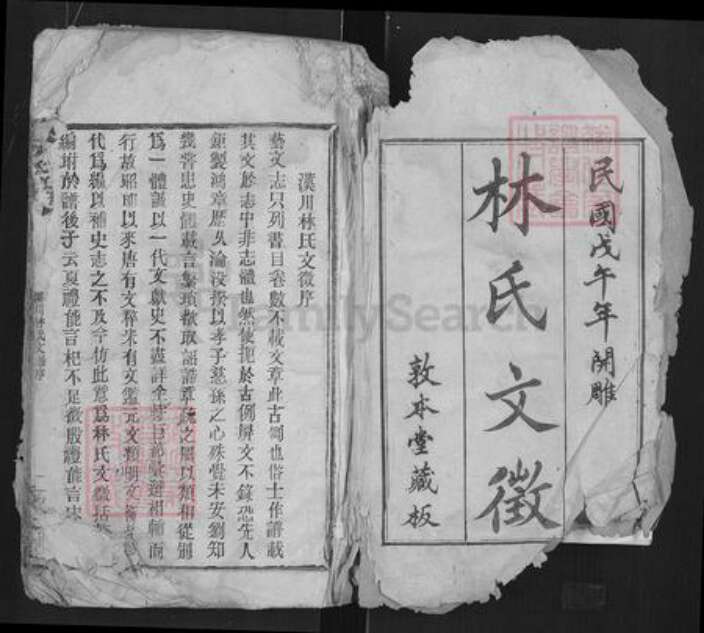 民國戊午年開雕
林氏文徵
敦本堂藏板
漢川林氏文徵序
藝文志只列書目卷數不載文章此古例也俗士作譜載
其文於志中非志體也然使拘於古例屏文不錄恐先人
鉅製鴻章歷久淪沒揆以孝子慈孫之心殊覺未安劉知
幾嘗思史體載言繁瑣擬取詔誥章疏之屬以類相從別
爲一體謹以一代文獻史不盡詳全
行故昭明以來唐有文粹宋有文鑑元文類明文
代爲編以補史志之不及今仿此意爲林氏文徵
編坿於譜後子云夏禮能言杞不足徵殷禮能言宋
FamilySearch